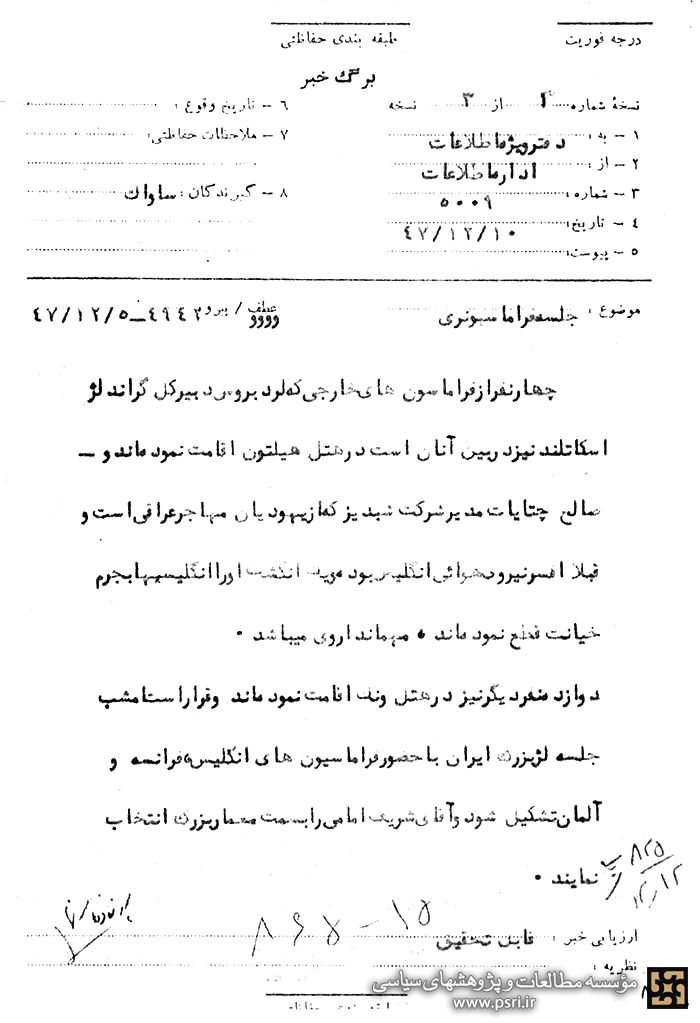 درجه فوریت
طبقه بندی حفاظتی
برگ خبر
نسخه شماره ۲ از ۳ نسخه
۱ – به: دفترویژه‌اطلاعات
۲ – از: اداره‌اطلاعات
۳ – شماره: ۵۰۰۹
۴ – تاریخ: ۴۷/۱۲/۱۰
۵ – پیوست:
۶ – تاریخ وقوع:
۷ – ملاحظات حفاظتی:
۸ – گیرندگان: ساواک
موضوع: جلسه‌فراماسونری
عطف / پیرو ۴۹۴۲–۴۷/۱۲/۵
چهارنفرازفراماسون های‌خارجی‌که‌لرد بروس‌دبیرکل گراند لژ
اسکاتلند نیزدربین آنان است درهتل هیلتون اقامت نموده‌اندو –
صالح چتایات مدیرشرکت شبدیز که‌ازیهودیان مهاجرعراقی‌است و
قبلا افسرنیروی‌هوائی‌انگلیس‌بوده‌ویک انگشت اوراانگلیسیهابجرم
خیانت قطع نموده‌اند ، میهماندار‌وی میباشد .
دوازده‌نفردیگرنیز درهتل ونک اقامت نموده‌اند وقراراست‌امشب
جلسه لژبزرگ ایران باحضورفراماسیون های انگلیس‌،فرانسه و
آلمان‌تشکیل شود وآقای‌شریف امامی‌رابسمت معماربزرگ انتخاب
نمایند .
۸۲۵
۱۲/۱۲
ارزیابی خبر: قابل تحقیق
نظریه:
موسسه مطالعات و پژوهشهای سیاسی
www.psri.ir